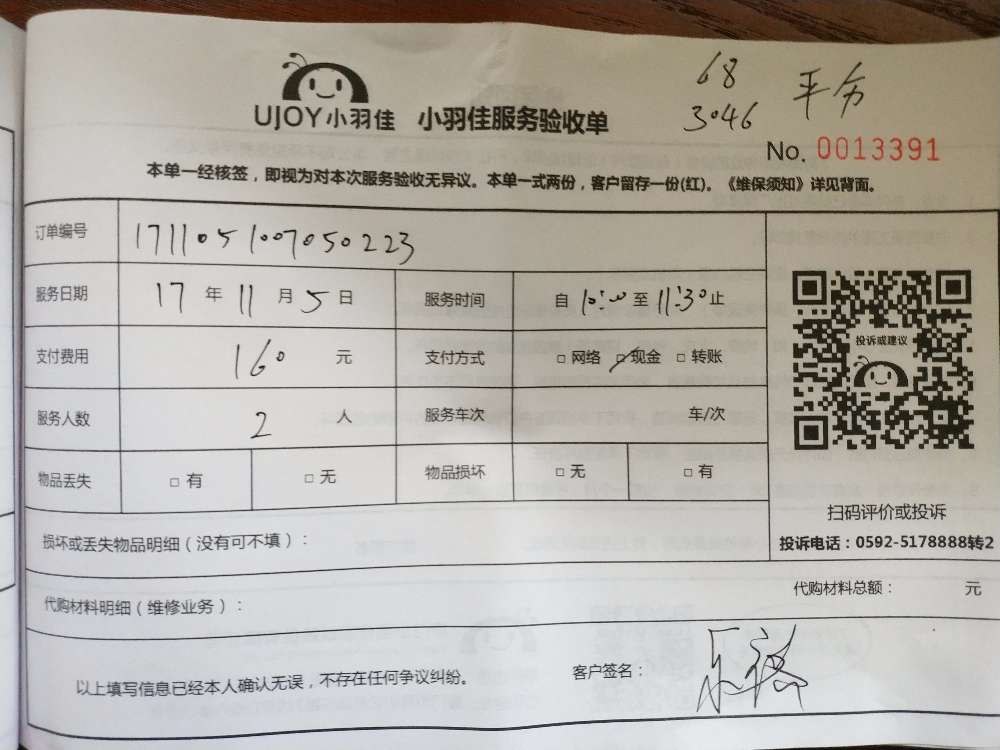 68 平分
3046
UJOY小羽佳 小羽佳服务验收单
No. 0013391
本单一经核签，即视为对本次服务验收无异议。本单一式两份，客户留存一份(红)。《维保须知》详见背面。
订单编号 1711051007050223
服务日期 17 年 11 月 5 日 服务时间 自 10:00 至 11:30 止
支付费用 160 元 支付方式 □ 网络 □ 现金 □ 转账
投诉或建议
服务人数 2 人 服务车次 车/次
物品丢失 □ 有 □ 无 物品损坏 □ 无 □ 有
扫码评价或投诉
损坏或丢失物品明细（没有可不填）：
投诉电话：0592-5178888转2
代购材料明细（维修业务）： 代购材料总额： 元
以上填写信息已经本人确认无误，不存在任何争议纠纷。 客户签名：